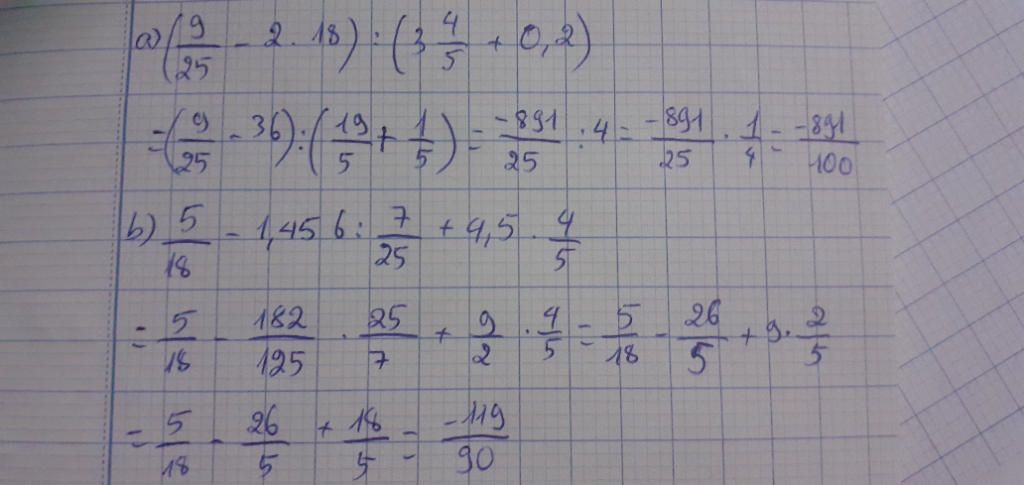 a) (9/25 - 2 . 18) : (3 4/5 + 0,2)
= (9/25 - 36) : (19/5 + 1/5) = -891/25 : 4 = -891/25 . 1/4 = -891/100
b) 5/18 - 1,456 : 7/25 + 4,5 . 4/5
= 5/18 - 182/125 . 25/7 + 9/2 . 4/5 = 5/18 - 26/5 + 9 . 2/5
= 5/18 - 26/5 + 18/5 = -119/90